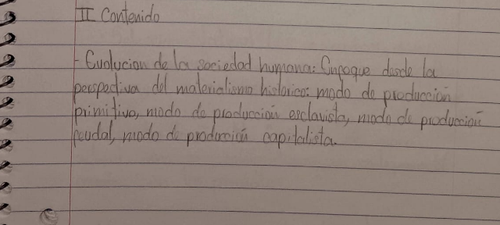 II Contenido
- Evolucion de la sociedad humana: Enfoque desde la
perspectiva del materialismo historico: modo de producción
primitivo, modo de producción esclavista, modo de producción
feudal, modo de producción capitalista.